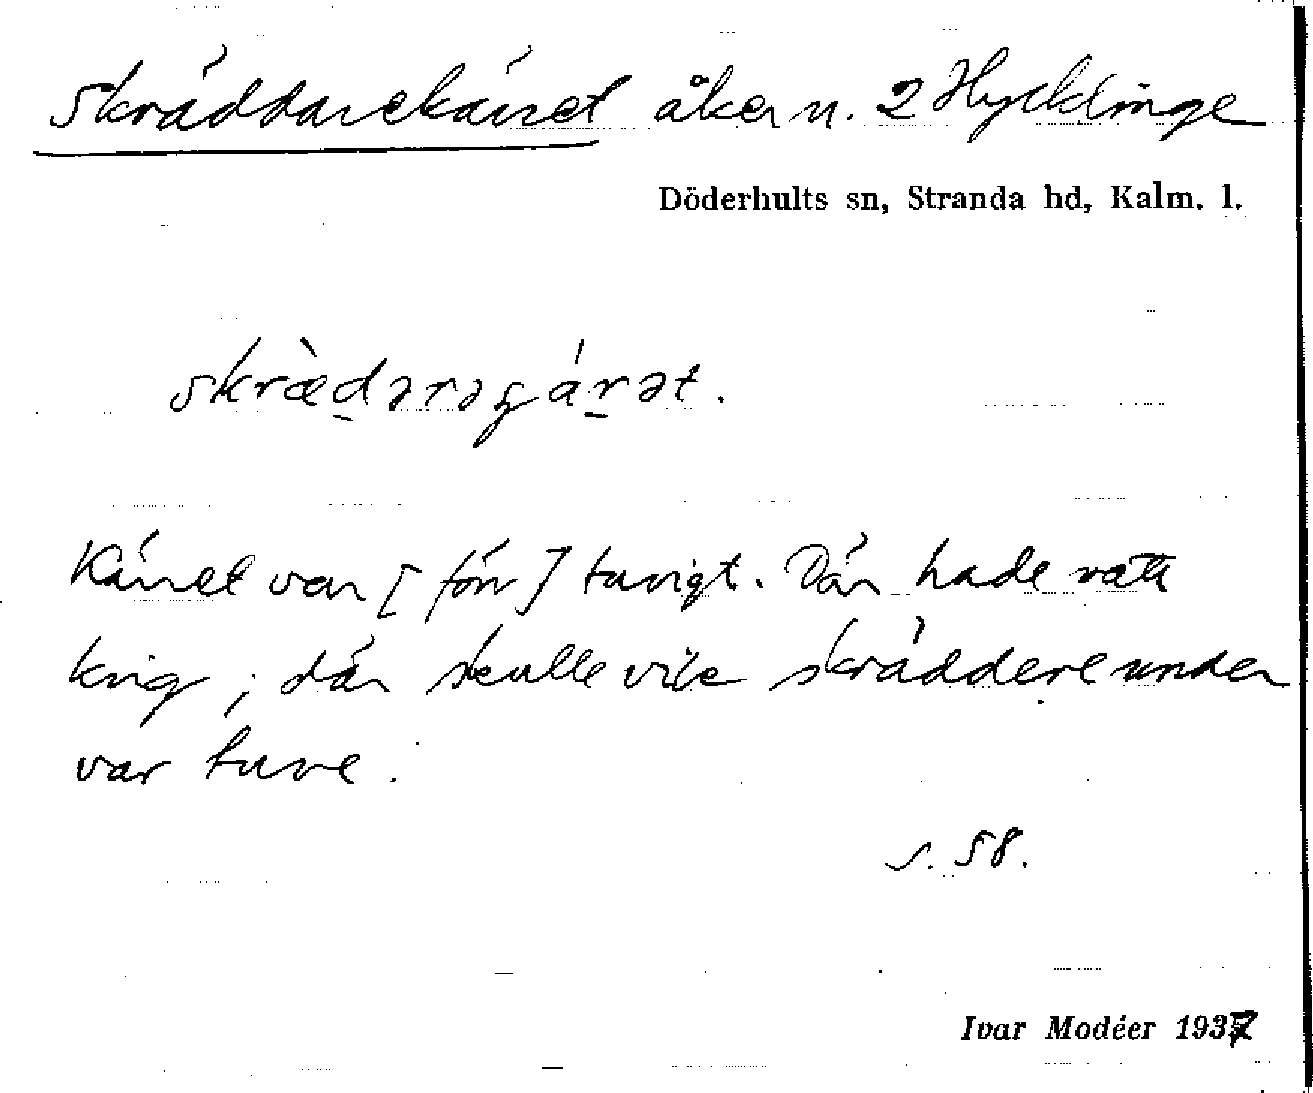 Skräddarekärret åker n. 2 Hycklinge
Döderhults sn, Stranda hd, Kalm. l.
skræ̀dərəɕárət.
Kärret var [förr] tuvigt. Där hade vatt
krig; där skulle vile skräddere under
var tuve.
s. 58.
Ivar Modéer 1937